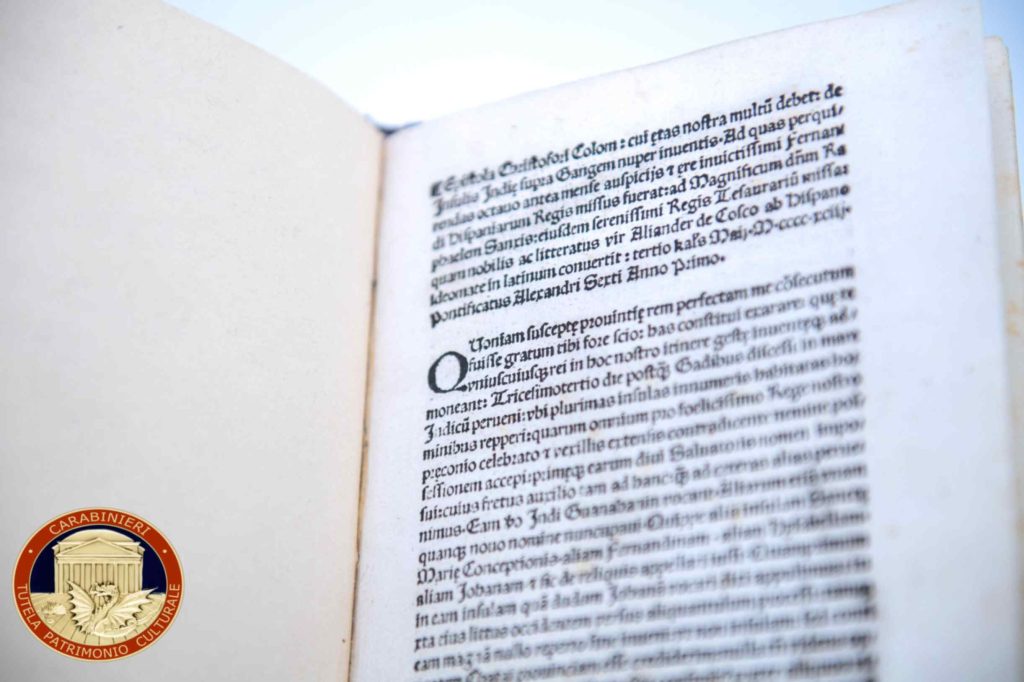 ¶ Epistola Christofori Colom: cui ętas nostra multũ debet: de
Insulis Indię supra Gangem nuper inuentis. Ad quas perqui/
rendas octauo antea mense auspicijs ⁊ ęre inuictissimi Fernan
di Hispaniarum Regis missus fuerat: ad Magnificum dñm Ra
phaelem Sanxis: eiusdem serenissimi Regis Tesaurariũ missa:
quam nobilis ac litteratus vir Aliander de Cosco ab Hispano
ideomate in latinum conuertit: tertio kal's Maij. M.cccc.xciij.
Pontificatus Alexandri Sexti Anno Primo.
Quoniam susceptę prouintię rem perfectam me cõsecutum
fuisse gratum tibi fore scio: has constitui exarare: quę te
vniuscuiusqꝫ rei in hoc nostro itinere gestę inuentęqꝫ ad/
moneant: Tricesimotertio die postqꝫ Gadibus discessi in mare
Indicũ perueni: vbi plurimas insulas innumeris habitatas ho/
minibus repperi: quarum omnium pro foelicissimo Rege nostro
pręconio celebrato ⁊ vexillis extensis contradicente nemine pos/
sessionem accepi: primęqꝫ earum diui Saluatoris nomen impo/
sui: cuius fretus auxilio tam ad hanc: qꝫ ad cęteras alias perueni/
nimus. Eam ꝟo Indi Guanahanin vocant. Aliarum etiã vnam
quanqꝫ nouo nomine nuncupaui. Quippe aliã insulam Sanctę
Marię Conceptionis. aliam Fernandinam. aliam Hysabellam.
aliam Johanam ⁊ sic de reliquis appellari iussi. Quamprimum
in eam insulam quã dudum Johanã vocari dixi appulimus: iu
xta eius littus occidentem versus aliquantulum processi: tamqꝫ
eam magnã nullo reperto fine inueni
CARABINIERI
TUTELA PATRIMONIO CULTURALE